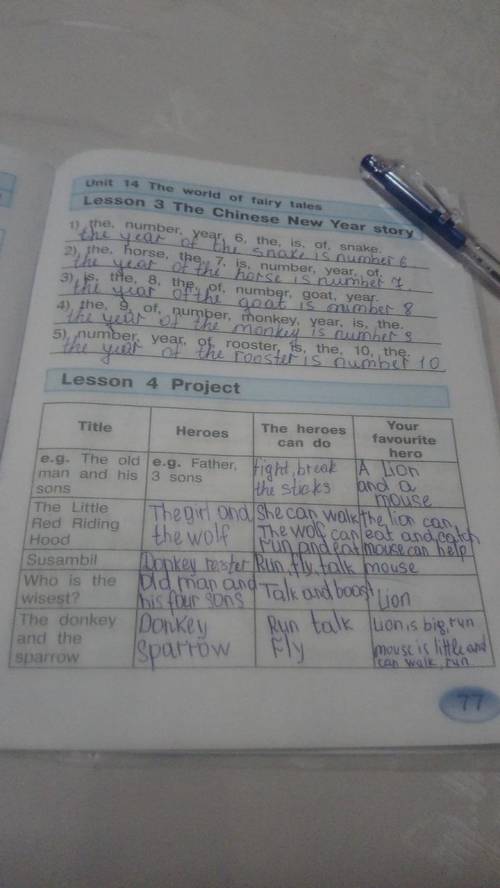 Unit 14 The world of fairy tales
Lesson 3 The Chinese New Year story
1) the, number, year, 6, the, is, of, snake.
the year of the snake is number 6
2) the, horse, the, 7, is, number, year, of.
the year of the horse is number 7.
3) is, the, 8, the, of, number, goat, year.
the year of the goat is number 8
4) the, 9, of, number, monkey, year, is, the.
the year of the monkey is number 9
5) number, year, of, rooster, is, the, 10, the.
the year of the rooster is number 10
Lesson 4 Project
Title
Heroes
The heroes
can do
Your
favourite
hero
e.g. The old
man and his
sons
e.g. Father,
3 sons
fight, break
the sticks
A Lion
and a
mouse
The Little
Red Riding
Hood
The girl and
the wolf
She can walk
The wolf can
run and eat
the lion can
eat and catch
mouse can help
Susambil
Donkey rooster
Run, fly, talk
mouse
Who is the
wisest?
Old man and
his four sons
Talk and boost
Lion
The donkey
and the
sparrow
Donkey
Sparrow
Run talk
Fly
Lion is big, run
mouse is little and
can walk, run
77